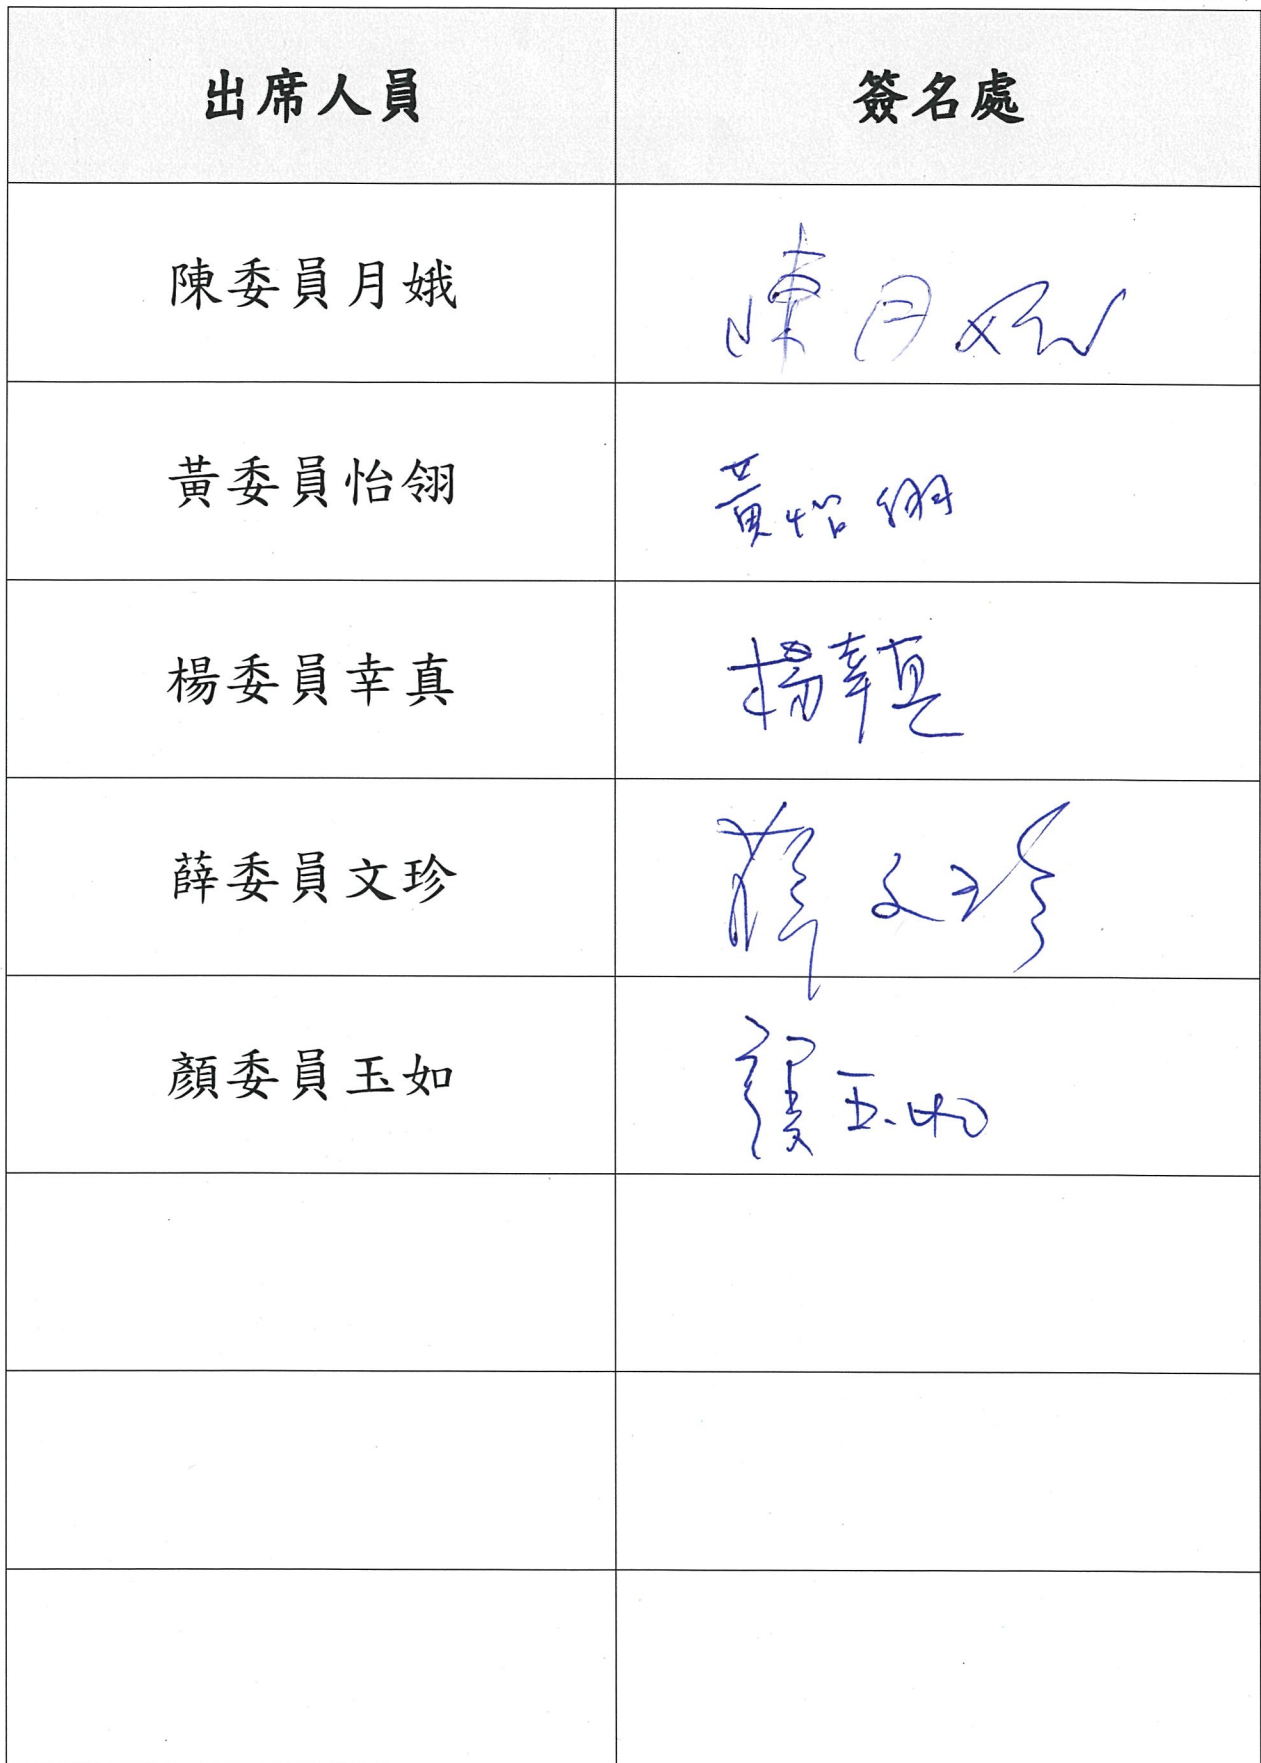 出席人員 簽名處
陳委員月娥 陳月娥
黃委員怡翎 黃怡翎
楊委員幸真 楊幸真
薛委員文珍 薛文珍
顏委員玉如 顏玉如